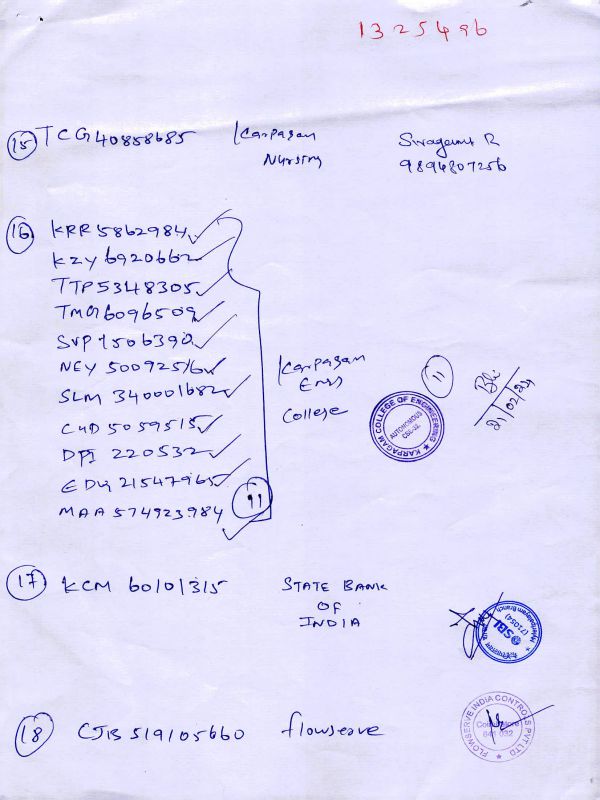 1325496
15 TCG40858685 Karpagam Nursing Sivagami R
9894807256
16 KRR 5862984
KZY 6920662
TTP 5348305
TMG 6096509
SVP 1506390
NEY 50092516
SLM 340001682
CHD 5059515
DPI 220532
EDU 21547965
MAA 574923984
11
Karpagam
Engg
College
11
KARPAGAM COLLEGE OF ENGINEERING
AUTONOMOUS
21/02/24
17 KCM 60101315 STATE BANK
OF
INDIA
SBI
(71054)
18 CJB 519105660 flowserve
FLOWSERVE INDIA CONTROLS PVT LTD
Coimbatore
641 032